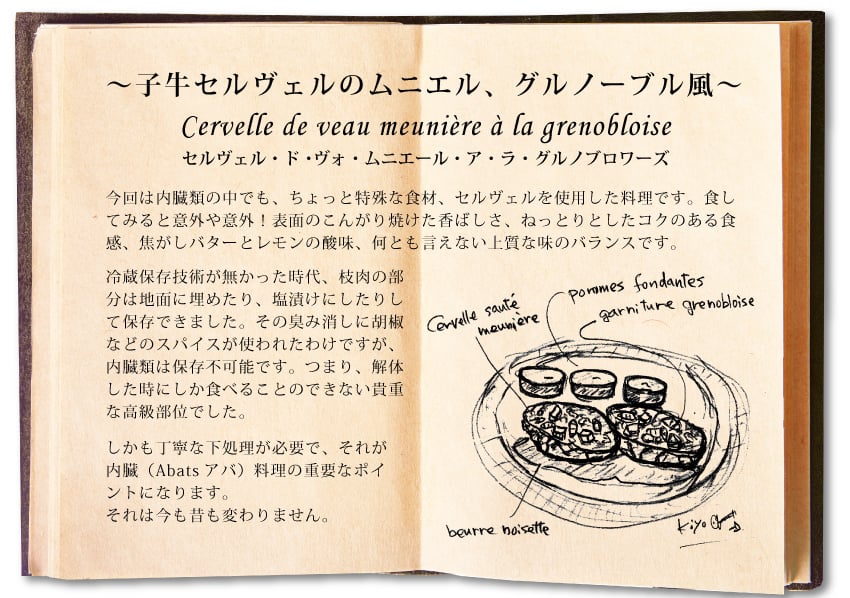 ～子牛セルヴェルのムニエル、グルノーブル風～
Cervelle de veau meunière à la grenobloise
セルヴェル・ド・ヴォ・ムニエール・ア・ラ・グルノブロワーズ
今回は内臓類の中でも、ちょっと特殊な食材、セルヴェルを使用した料理です。食し
てみると意外や意外！表面のこんがり焼けた香ばしさ、ねっとりとしたコクのある食
感、焦がしバターとレモンの酸味、何とも言えない上質な味のバランスです。
冷蔵保存技術が無かった時代、枝肉の部
分は地面に埋めたり、塩漬けにしたりし
て保存できました。その臭み消しに胡椒
などのスパイスが使われたわけですが、
内臓類は保存不可能です。つまり、解体
した時にしか食べることのできない貴重
な高級部位でした。
しかも丁寧な下処理が必要で、それが
内臓（Abats アバ）料理の重要なポイ
ントになります。
それは今も昔も変わりません。
pommes fondantes
garniture grenobloise
Cervelle sauté
meunière
beurre noisette
Kiyo